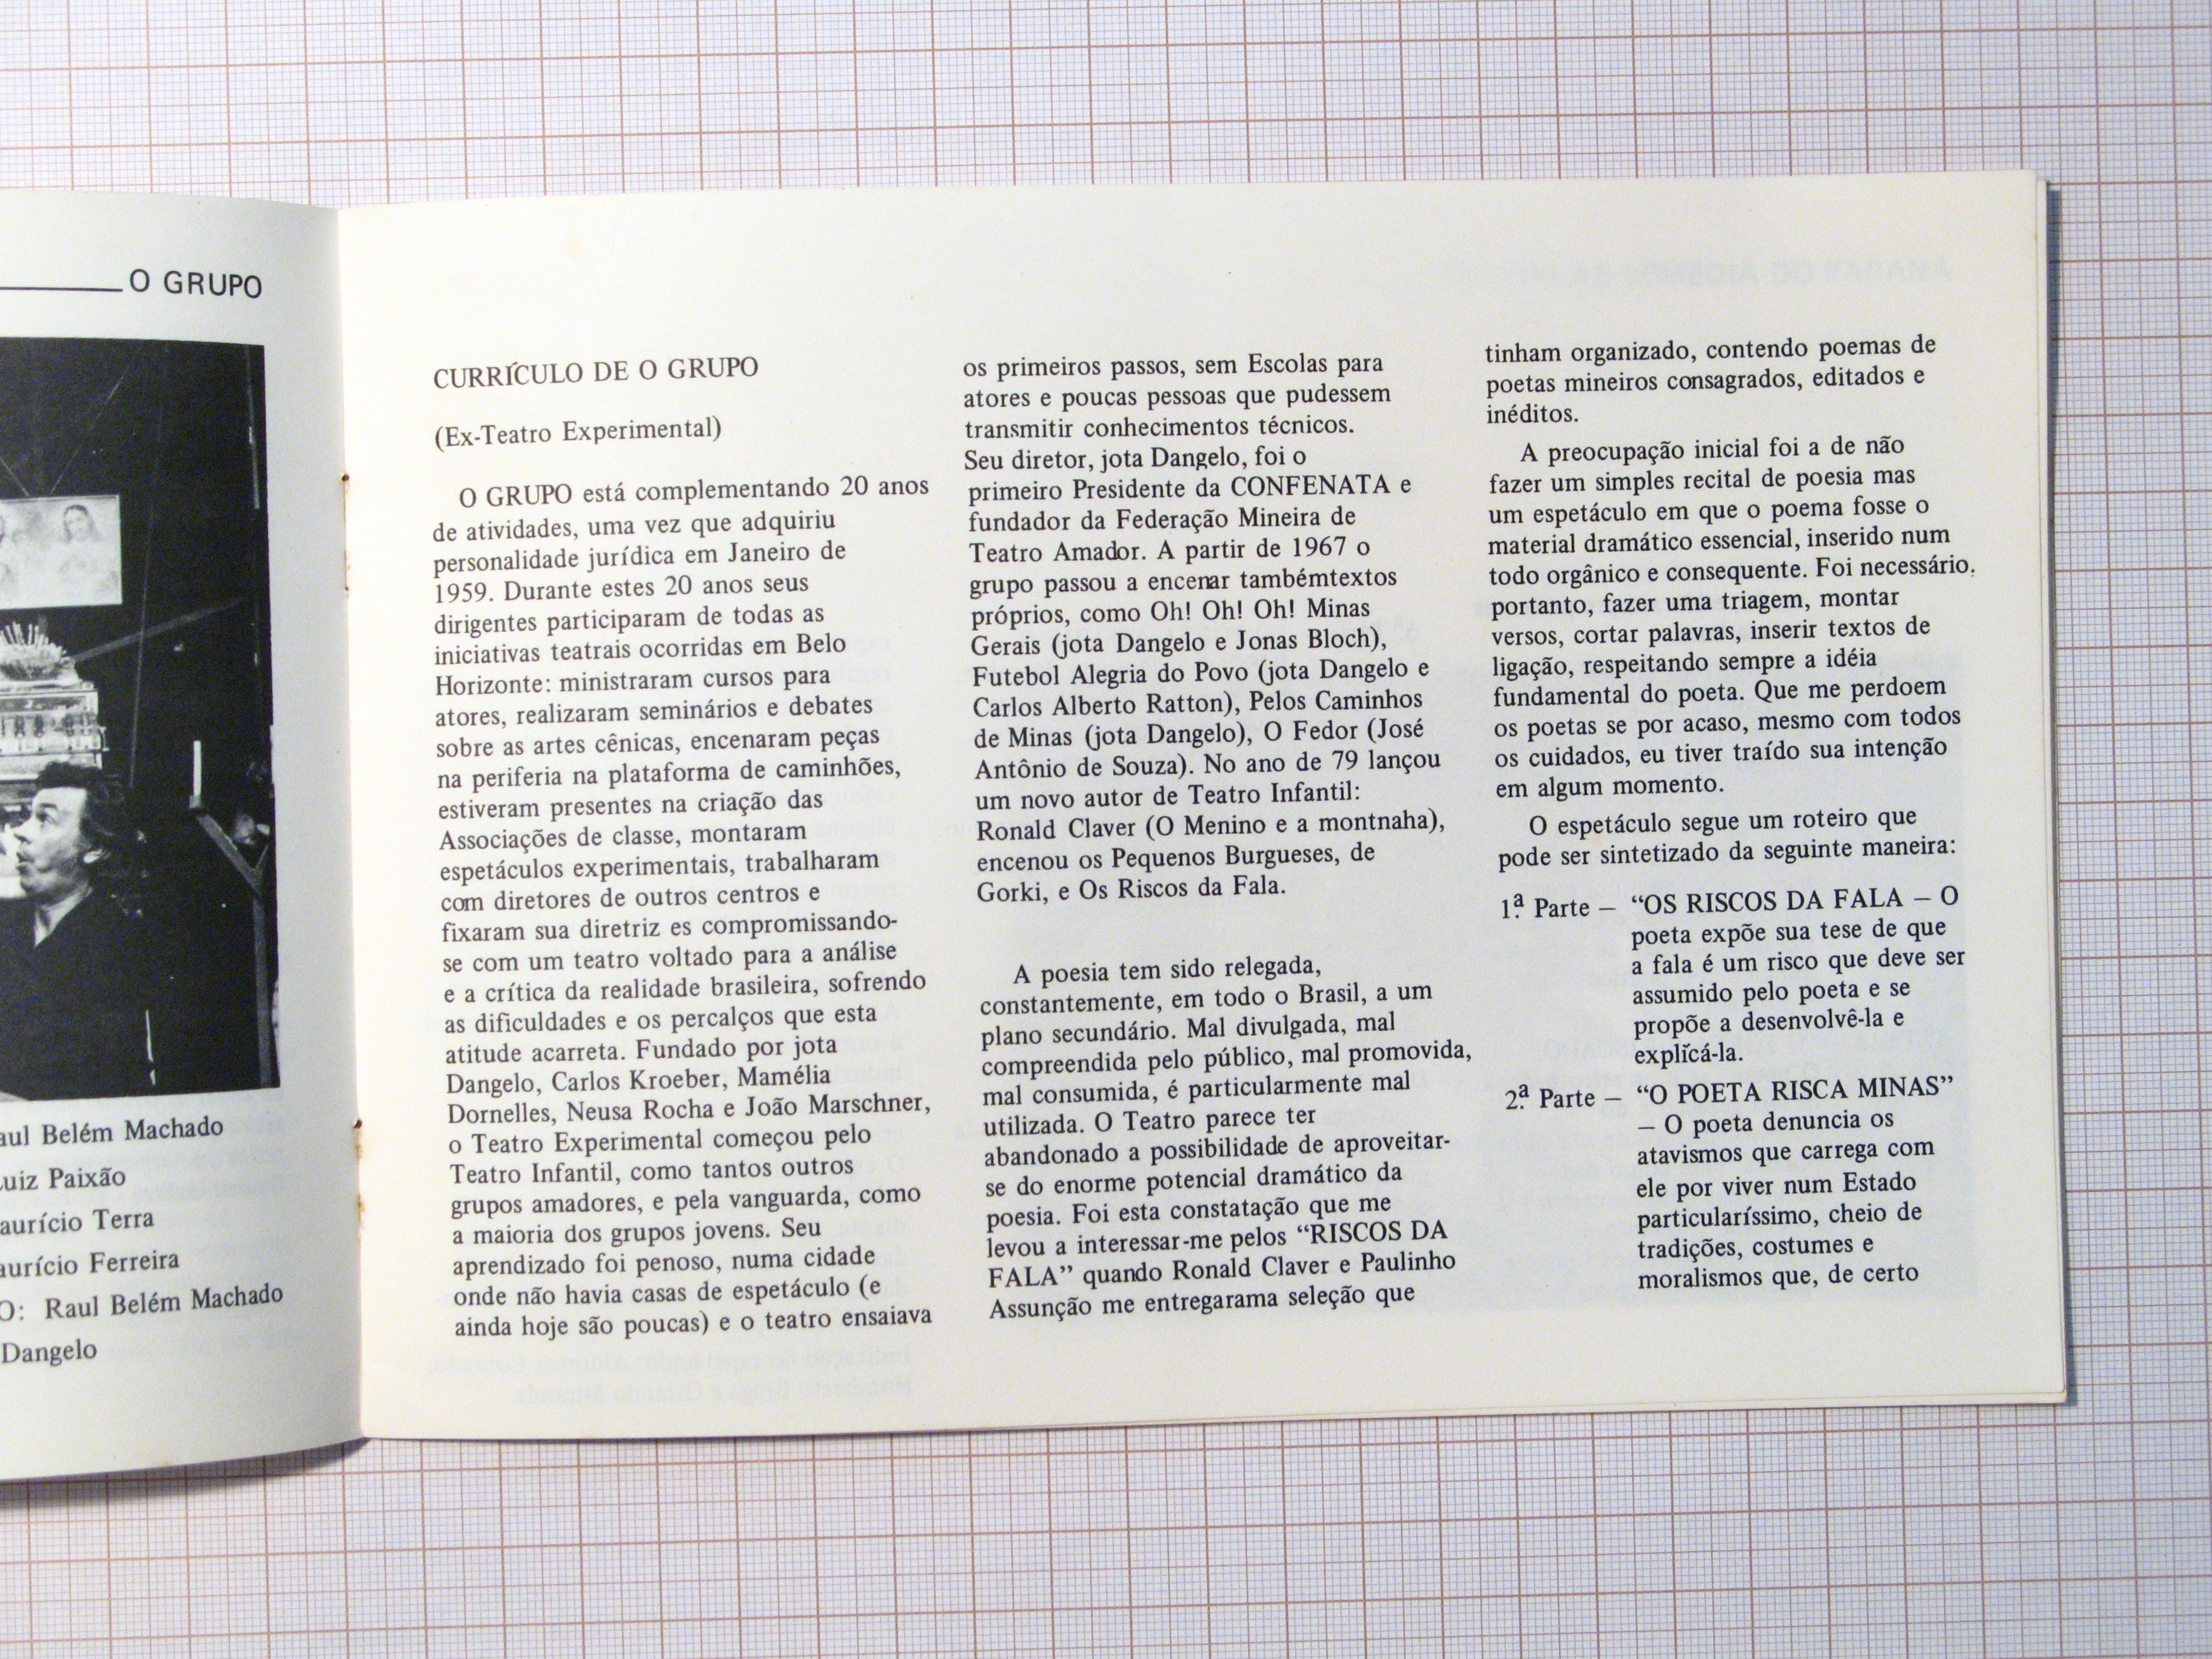 O GRUPO
Belém Machado
Paixão
Terra
Ferreira
Raul Belém Machado
Dangelo
CURRÍCULO DE O GRUPO
(Ex-Teatro Experimental)
O GRUPO está complementando 20 anos
de atividades, uma vez que adquiriu
personalidade jurídica em Janeiro de
1959. Durante estes 20 anos seus
dirigentes participaram de todas as
iniciativas teatrais ocorridas em Belo
Horizonte: ministraram cursos para
atores, realizaram seminários e debates
sobre as artes cênicas, encenaram peças
na periferia na plataforma de caminhões,
estiveram presentes na criação das
Associações de classe, montaram
espetáculos experimentais, trabalharam
com diretores de outros centros e
fixaram sua diretriz es compromissando-
se com um teatro voltado para a análise
e a crítica da realidade brasileira, sofrendo
as dificuldades e os percalços que esta
atitude acarreta. Fundado por jota
Dangelo, Carlos Kroeber, Mamélia
Dornelles, Neusa Rocha e João Marschner,
o Teatro Experimental começou pelo
Teatro Infantil, como tantos outros
grupos amadores, e pela vanguarda, como
a maioria dos grupos jovens. Seu
aprendizado foi penoso, numa cidade
onde não havia casas de espetáculo (e
ainda hoje são poucas) e o teatro ensaiava
os primeiros passos, sem Escolas para
atores e poucas pessoas que pudessem
transmitir conhecimentos técnicos.
Seu diretor, jota Dangelo, foi o
primeiro Presidente da CONFENATA e
fundador da Federação Mineira de
Teatro Amador. A partir de 1967 o
grupo passou a encenar tambémtextos
próprios, como Oh! Oh! Oh! Minas
Gerais (jota Dangelo e Jonas Bloch),
Futebol Alegria do Povo (jota Dangelo e
Carlos Alberto Ratton), Pelos Caminhos
de Minas (jota Dangelo), O Fedor (José
Antônio de Souza). No ano de 79 lançou
um novo autor de Teatro Infantil:
Ronald Claver (O Menino e a montnaha),
encenou os Pequenos Burgueses, de
Gorki, e Os Riscos da Fala.
A poesia tem sido relegada,
constantemente, em todo o Brasil, a um
plano secundário. Mal divulgada, mal
compreendida pelo público, mal promovida,
mal consumida, é particularmente mal
utilizada. O Teatro parece ter
abandonado a possibilidade de aproveitar-
se do enorme potencial dramático da
poesia. Foi esta constatação que me
levou a interessar-me pelos “RISCOS DA
FALA” quando Ronald Claver e Paulinho
Assunção me entregarama seleção que
tinham organizado, contendo poemas de
poetas mineiros consagrados, editados e
inéditos.
A preocupação inicial foi a de não
fazer um simples recital de poesia mas
um espetáculo em que o poema fosse o
material dramático essencial, inserido num
todo orgânico e consequente. Foi necessário.
portanto, fazer uma triagem, montar
versos, cortar palavras, inserir textos de
ligação, respeitando sempre a idéia
fundamental do poeta. Que me perdoem
os poetas se por acaso, mesmo com todos
os cuidados, eu tiver traído sua intenção
em algum momento.
O espetáculo segue um roteiro que
pode ser sintetizado da seguinte maneira:
1.ª Parte – “OS RISCOS DA FALA – O
poeta expõe sua tese de que
a fala é um risco que deve ser
assumido pelo poeta e se
propõe a desenvolvê-la e
explícá-la.
2.ª Parte – “O POETA RISCA MINAS”
– O poeta denuncia os
atavismos que carrega com
ele por viver num Estado
particularíssimo, cheio de
tradições, costumes e
moralismos que, de certo